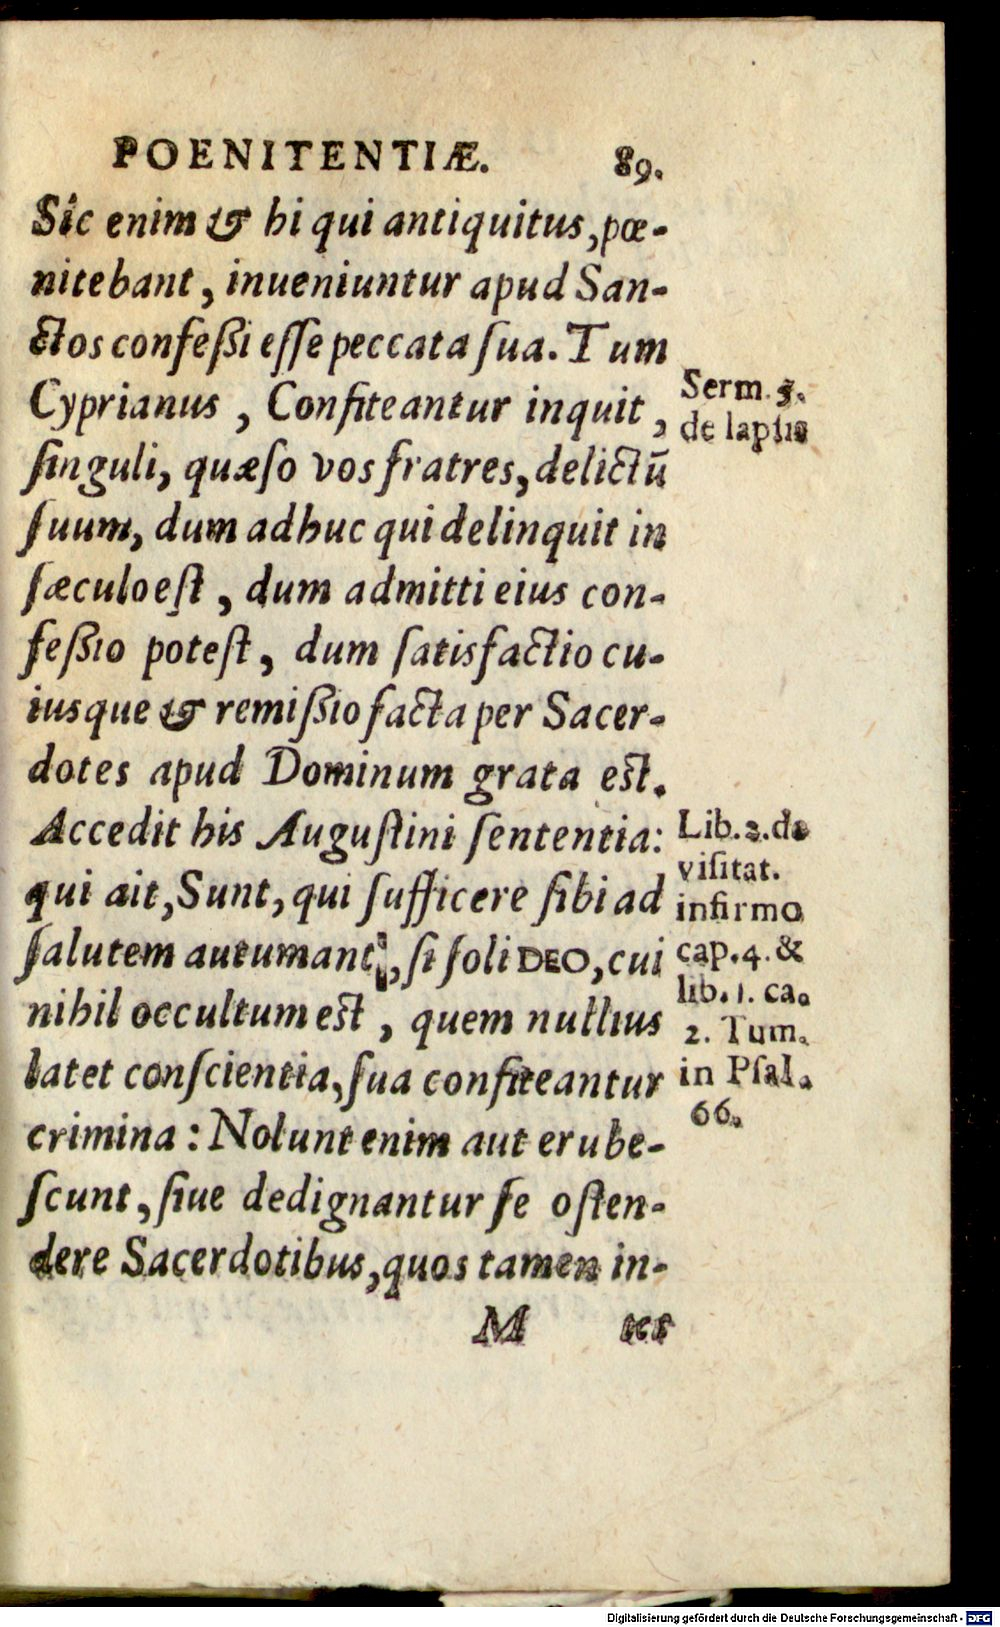 POENITENTIÆ. 89.
Sic enim & hi qui antiquitus, pœ-
nitebant, inueniuntur apud San-
ctos confeßi eſſe peccata ſua. Tum
Cyprianus, Confiteantur inquit,
ſinguli, quæſo vos fratres, delictū
ſuum, dum adhuc qui delinquit in
ſæculo eſt, dum admitti eius con-
feßio poteſt, dum ſatisfactio cu-
iusque & remißio facta per Sacer-
dotes apud Dominum grata eſt.
Accedit his Auguſtini ſententia:
qui ait, Sunt, qui ſufficere ſibi ad
ſalutem autumant, ſi ſoli DEO, cui
nihil occultum eſt, quem nullius
latet conſcientia, ſua confiteantur
crimina: Nolunt enim aut erube-
ſcunt, ſiue dedignantur ſe oſten-
dere Sacerdotibus, quos tamen in-
M ter
Serm. 5.
de lapſis
Lib. 2. de
viſitat.
infirmo
cap. 4. &
lib. 1. ca.
2. Tum.
in Pſal.
66.
Digitalisierung gefördert durch die Deutsche Forschungsgemeinschaft - DFG